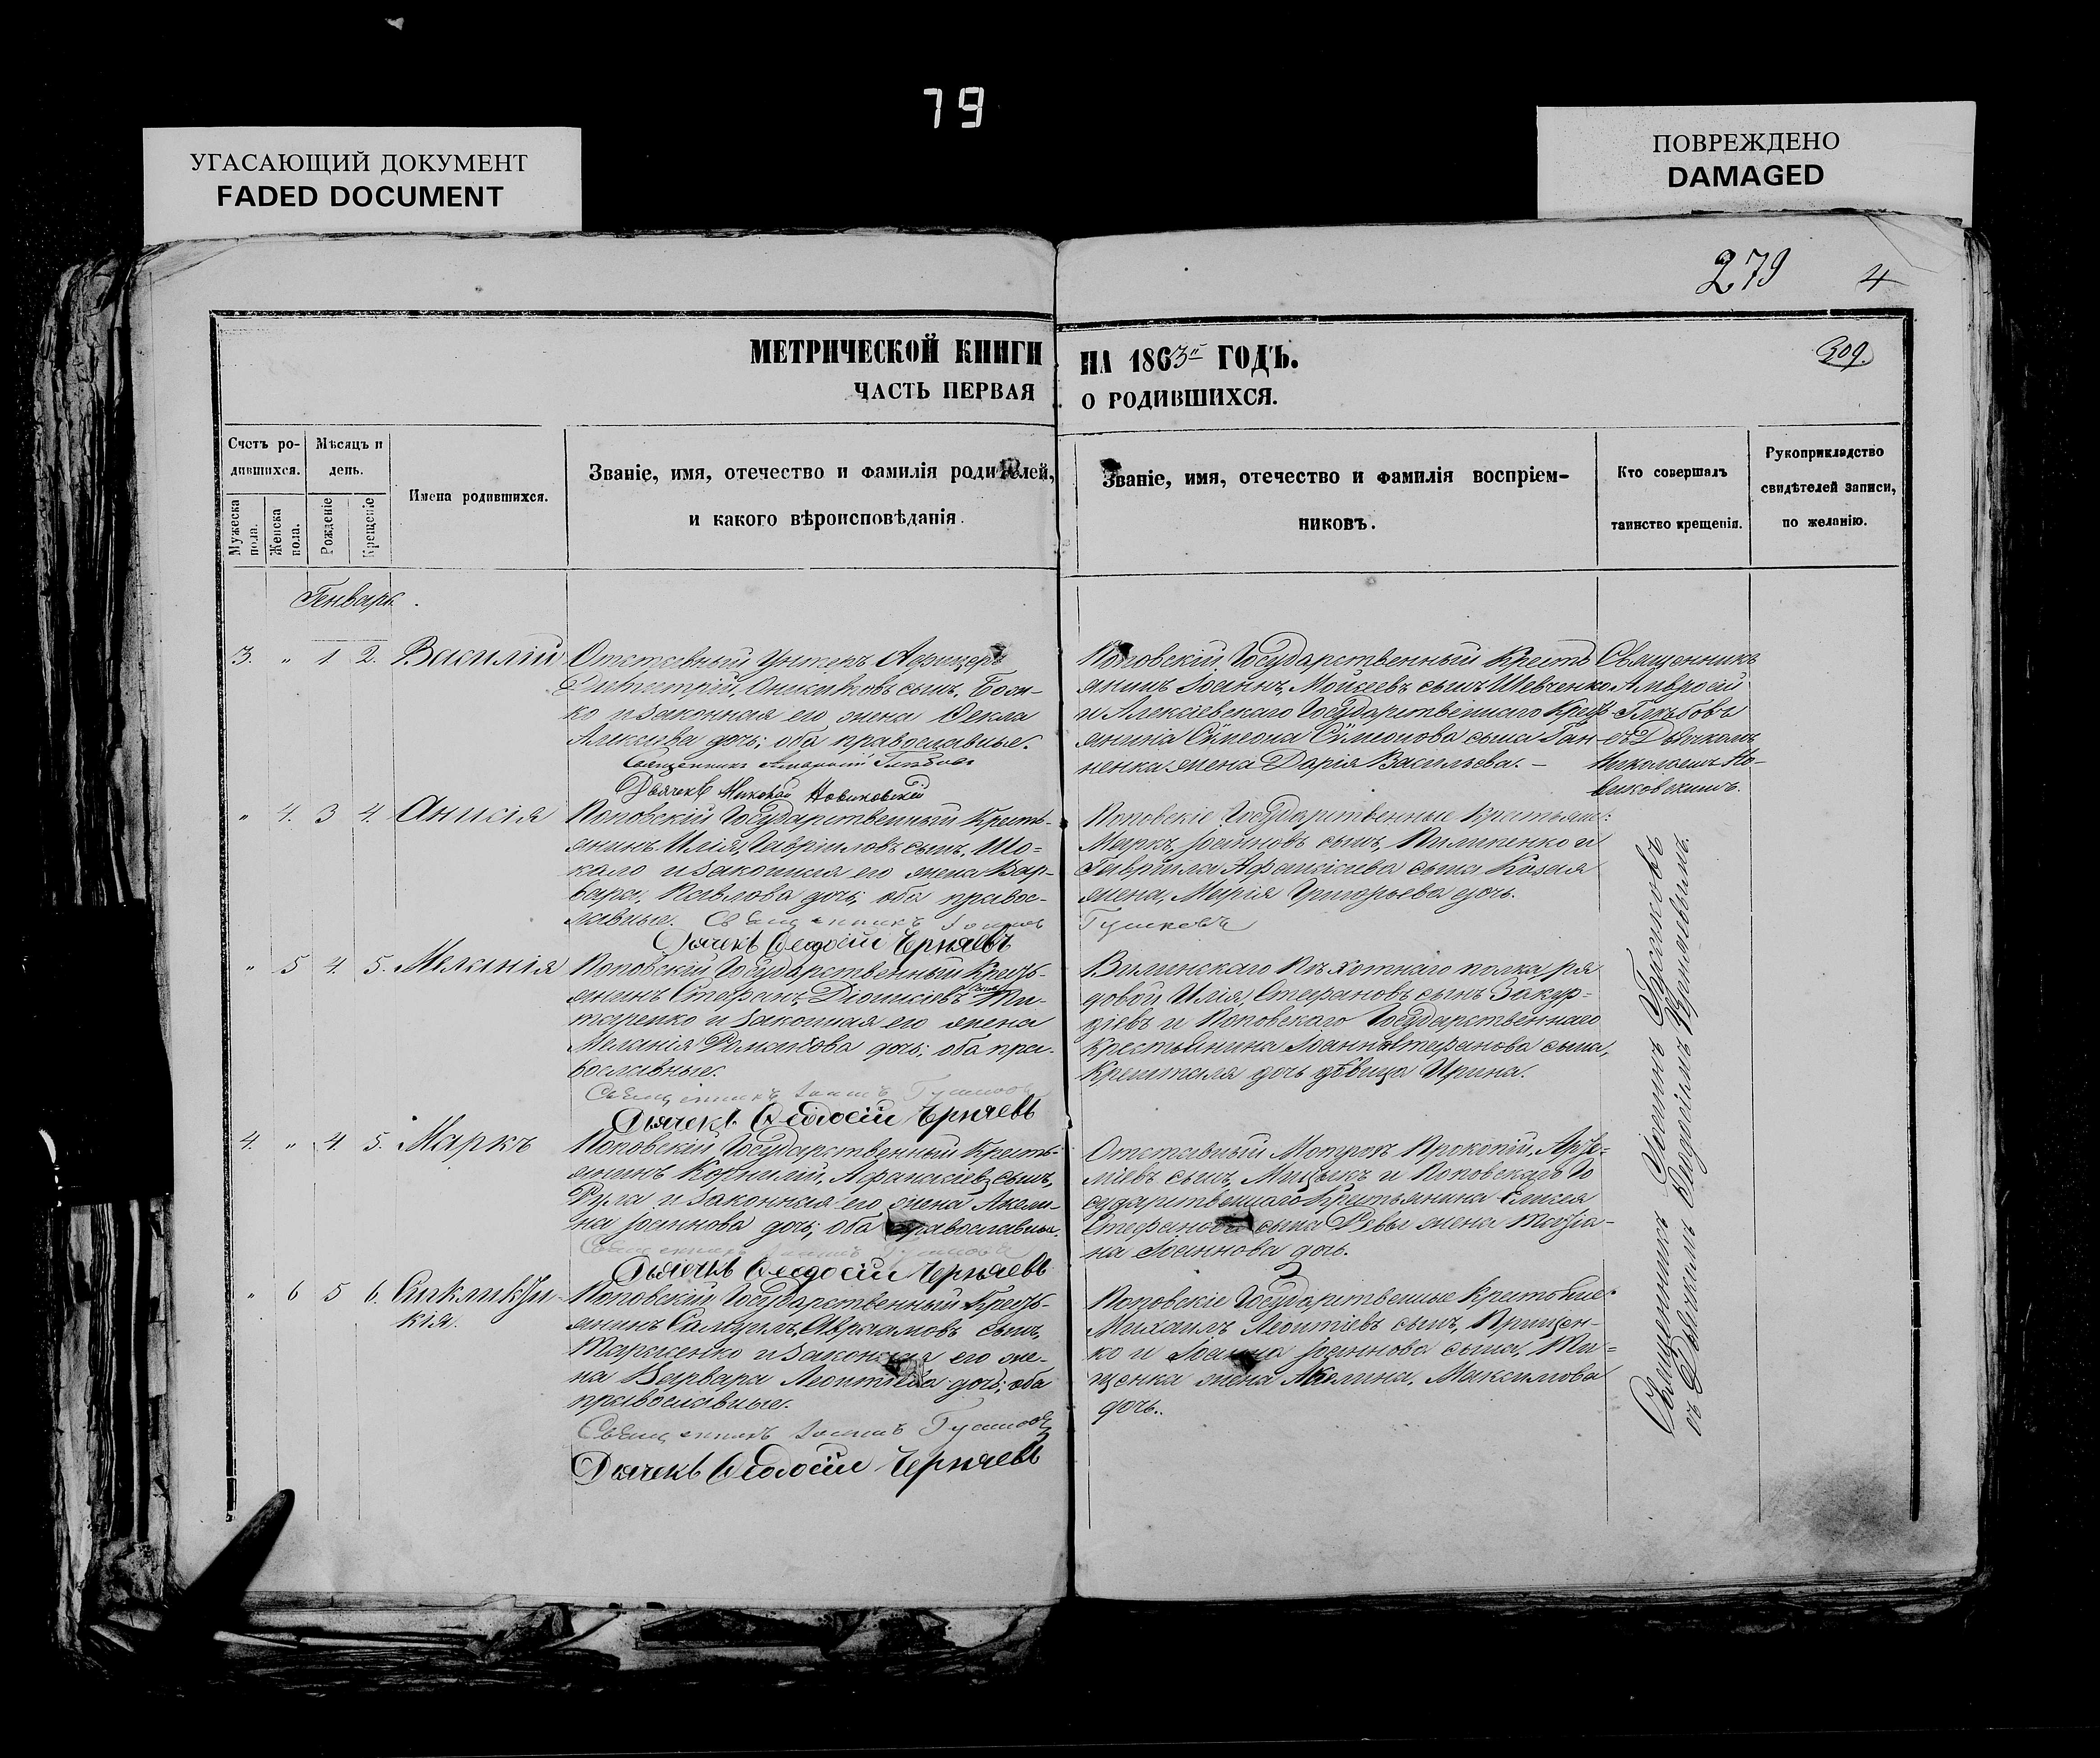 79
УГАСАЮЩИЙ ДОКУМЕНТ
FADED DOCUMENT
ПОВРЕЖДЕНО
DAMAGED
279 4
309.
МЕТРИЧЕСКОЙ КНИГИ НА 1863й ГОДЪ.
ЧАСТЬ ПЕРВАЯ О РОДИВШИХСЯ.
Счетъ ро-
дившихся.
Мужеска пола.
Женска пола.
Мѣсяцъ и
день.
Рожденіе
Крещеніе
Имена родившихся.
Званіе, имя, отечество и фамилія родителей,
и какого вѣроисповѣданія.
Званіе, имя, отечество и фамилія воспріем-
никовъ.
Кто совершалъ
таинство крещенія.
Рукоприкладство
свидѣтелей записи,
по желанію.
Генварь.
3. " 1 2. Василій
Отставный Унтеръ Афицеръ
сынъ, Бой-
ко и законная его жена Ѳекла
Алексіева дочь; оба православные.
Дьячекъ Николай Новиковскій
Поповскій Государственный Кресть
янинъ Іоаннъ, Моисеевъ сынъ Шевченко
и Алексіевскаго Государственнаго Крест-
янина Сѵмеона Сѵмеонова сына Ган-
ненка жена Дарія Васильева. —
Священникъ
Амвросій
Глѣбовъ
съ Дьячкомъ
Николаемъ Но-
виковскимъ.
" 4. 3 4. Анисія
Поповскій Государственный Кресть-
янинъ Илія, Гавріиловъ сынъ, Шо-
кало и законная его жена Вар-
вара, Павлова дочь; оба правос-
лавные. Священникъ Іоаннъ
Дьячекъ Ѳеодосій Черняевъ
Поповскіе Государственные Крестьяне:
Маркъ, Іоанновъ сынъ, Пилипенко и
Гавріила Афанасіева сына Козая
жена, Марія Григорьева дочь.
" 5 4. 5. Меланія
Поповскій Государственный Кресть-
янинъ Стефанъ, Діонисіевъ сынъ Ти-
таренко и законная его жена
Меланія Романова дочь; оба пра-
вославные.
Священникъ Іоаннъ
Дьячекъ Ѳеодосій Черняевъ
Виленскаго Пѣхотнаго полка, ря
довой Илія, Стефановъ сынъ
и Поповскаго Государственнаго
Крестьянина Іоанна Стефанова сына,
дочь дѣвица Ирина.
4. " 4. 5. Маркъ
Поповскій Государственный Кресть-
янинъ Корнилій, Афанасіевъ сынъ,
Рула и законная его жена Акели-
на Іоаннова дочь; оба православные.
Священникъ Іоаннъ
Дьячекъ Ѳеодосій Черняевъ
Отставный Матрозъ Прокопій, Арѳе-
міевъ сынъ, Мицыкъ и Поповскаго Го
сударственнаго Крестьянина Елисея
Стефанова сына Ревы жена Татія-
на Іоаннова дочь.
" 6 5 6. Синклити-
кія.
Поповскій Государственный Кресть-
янинъ Самуилъ, Авраамовъ сынъ,
и законная его же-
на Варвара Леонтіева дочь; оба
православные.
Священникъ Іоаннъ
Дьячекъ Ѳеодосій Черняевъ
Поповскіе Государственные Крестьяне:
Михаилъ Леонтіевъ сынъ, Прищен-
ко и Іоанна Іоаннова сына, Ти-
щенка жена Акелина, Максимова
дочь.
Священникъ Іоаннъ
съ Дьячкомъ Ѳеодосіемъ Черняевымъ.